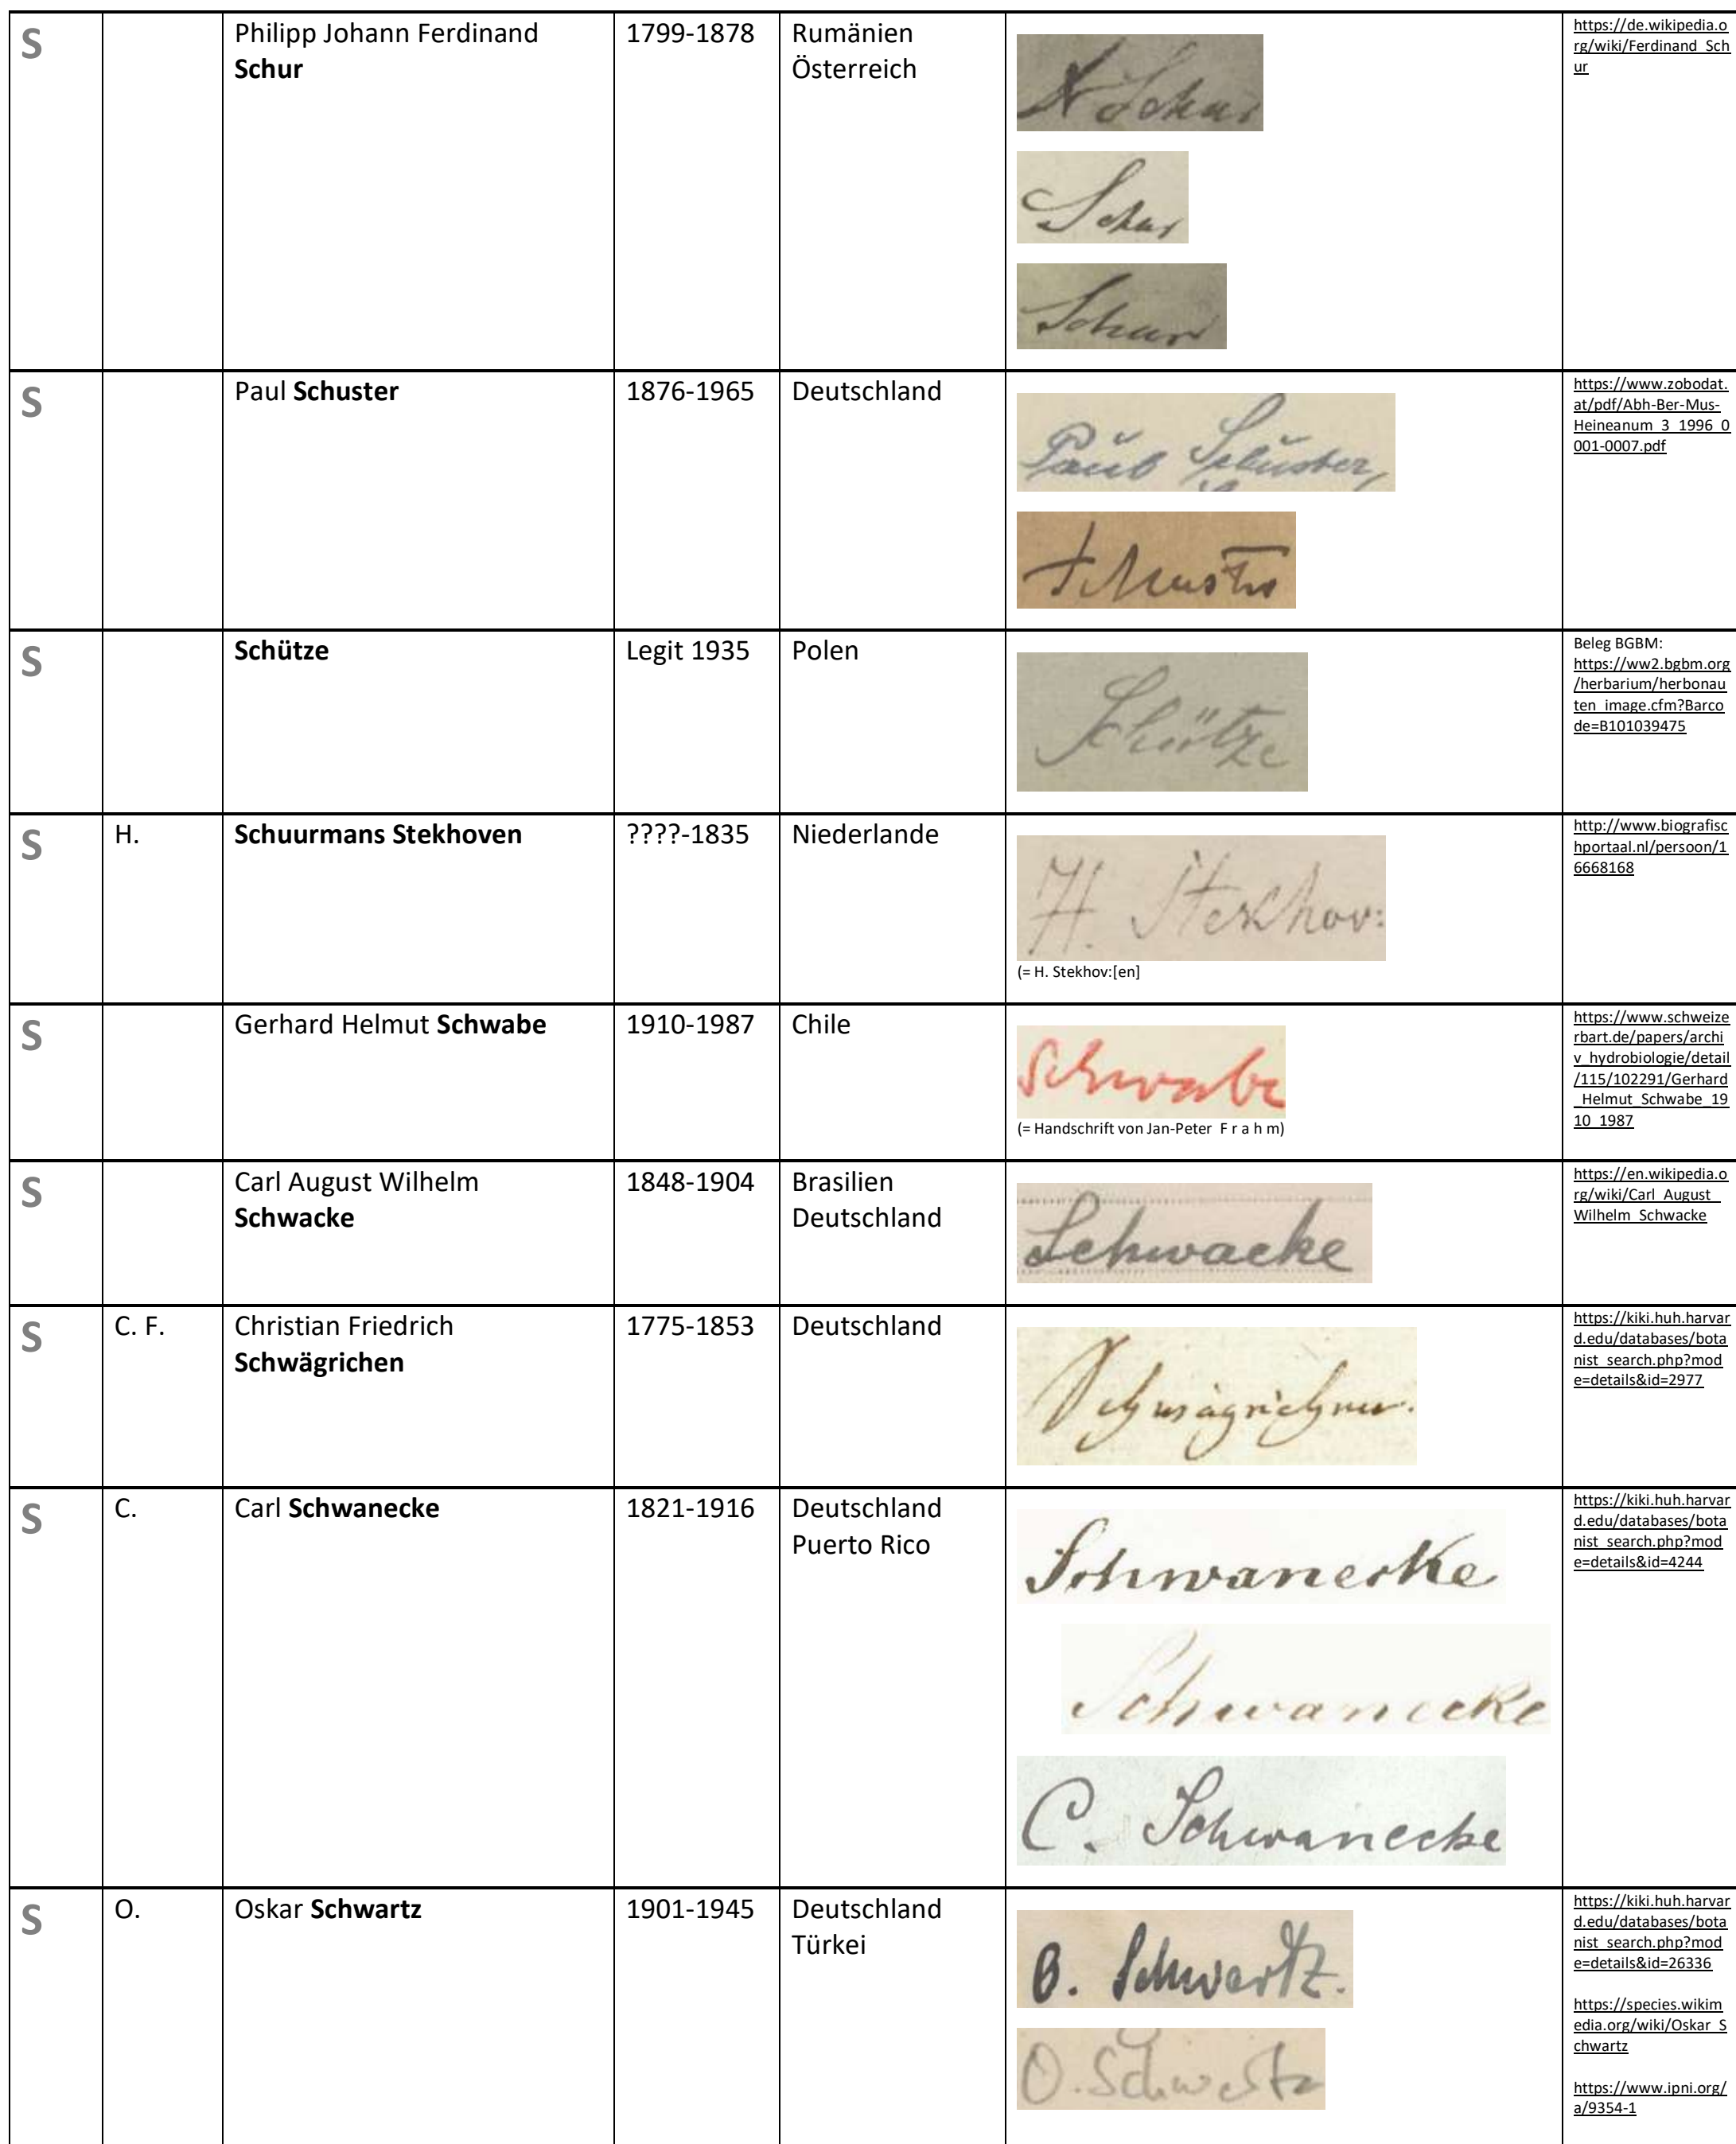 S
Philipp Johann Ferdinand
Schur
1799-1878
Rumänien
Österreich
Schur
Schur
Schur
https://de.wikipedia.o
rg/wiki/Ferdinand_Sch
ur
S
Paul Schuster
1876-1965
Deutschland
Paul Schuster
Schuster
https://www.zobodat.
at/pdf/Abh-Ber-Mus-
Heineanum_3_1996_0
001-0007.pdf
S
Schütze
Legit 1935
Polen
Schütze
Beleg BGBM:
https://ww2.bgbm.org
/herbarium/herbonau
ten_image.cfm?Barco
de=B101039475
S
H.
Schuurmans Stekhoven
????-1835
Niederlande
H. Stekhov:
(= H. Stekhov:[en]
http://www.biografisc
hportaal.nl/persoon/1
6668168
S
Gerhard Helmut Schwabe
1910-1987
Chile
Schwabe
(= Handschrift von Jan-Peter F r a h m)
https://www.schweize
rbart.de/papers/archi
v_hydrobiologie/detail
/115/102291/Gerhard
_Helmut_Schwabe_19
10_1987
S
Carl August Wilhelm
Schwacke
1848-1904
Brasilien
Deutschland
Schwacke
https://en.wikipedia.o
rg/wiki/Carl_August_
Wilhelm_Schwacke
S
C. F.
Christian Friedrich
Schwägrichen
1775-1853
Deutschland
Schwägrichen.
https://kiki.huh.harvar
d.edu/databases/bota
nist_search.php?mod
e=details&id=2977
S
C.
Carl Schwanecke
1821-1916
Deutschland
Puerto Rico
Schwanecke
Schwanecke
C. Schwanecke
https://kiki.huh.harvar
d.edu/databases/bota
nist_search.php?mod
e=details&id=4244
S
O.
Oskar Schwartz
1901-1945
Deutschland
Türkei
O. Schwartz.
O. Schwartz
https://kiki.huh.harvar
d.edu/databases/bota
nist_search.php?mod
e=details&id=26336
https://species.wikim
edia.org/wiki/Oskar_S
chwartz
https://www.ipni.org/
a/9354-1